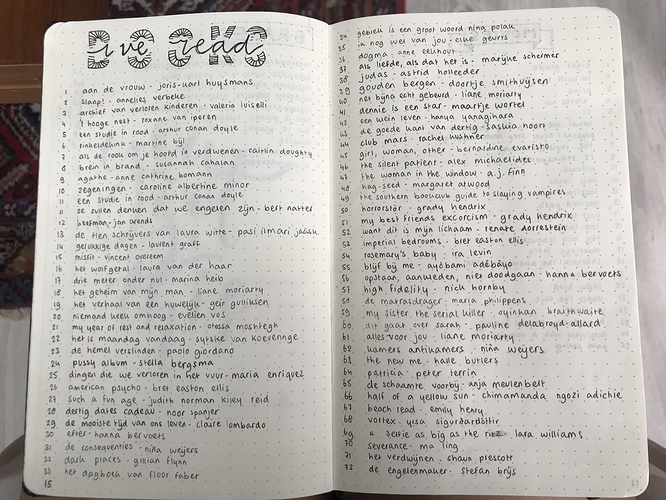 BOOKS
i've read
1 aan de vrouw - joris-karl huysmans
2 slaap! - annelies verbeke
3 archief van verloren kinderen - valeria luiselli
4 't hooge nest - roxane van iperen
5 een studie in rood - arthur conan doyle
6 rinkeldekink - martine bijl
7 als de rook om je hoofd is verdwenen - caitlin doughty
8 brein in brand - susannah cahalan
9 agathe - anne cathrine bomann
10 zegeningen - caroline albertine minor
11 een studie in rood - arthur conan doyle
11 ze zullen denken dat we engelen zijn - bert natter
12 heefman - jan arends
13 de tien schrijvers van laura witte - pasi ilmari jääsk
14 gelukkige dagen - laurent graff
15 misfit - vincent overeem
16 het wolfgetal - laura van der haar
17 drie meter onder nul - marina heib
18 het geheim van mijn man - liane moriarty
19 het verhaal van een huwelijk - geir gulliksen
20 niemand keek omhoog - evelien vos
21 my year of rest and relaxation - otessa moshfegh
22 het is maandag vandaag - sytske van koeveringe
23 de hemel verslinden - paolo giordano
24 pussy album - stella bergsma
25 dingen die we verloren in het vuur - maria enriquez
26 american psycho - bret easton ellis
27 such a fun age - judith norman kiley reid
28 dertig dates cadeau - noor spanjer
29 de mooiste tijd van ons leven - claire lombardo
30 efter - hanna bervoets
31 de consequenties - niña weijers
32 dark places - gillian flynn
33 het dagboek van floor faber
15
34 geniek is een groot woord nina polak
35 ik nog wel van jou - elke geurts
36 dogma - anne eekhout
37 als liefde, als dat het is - marijke schermer
38 judas - astrid holleeder
39 gouden bergen - doortje smithuijsen
40 net bijna echt gebeurd - liane moriarty
41 dennie is een star - maartje wortel
42 een klein leven - hanya yanagihara
43 de goede kant van dertig - saskia noort
44 club mars - rachel kushner
45 girl, woman, other - bernardine evaristo
46 the silent patient - alex michaelides
47 the woman in the window - a.j. finn
48 hag-seed - margaret atwood
49 the southern bookclub guide to slaying vampires
50 horrorstör - grady hendrix
51 my best friends excorcism - grady hendrix
52 want dit is mijn lichaam - renate dorrestein
53 imperial bedrooms - bret easton ellis
54 rosemary's baby - ira levin
55 blijf bij me - ayòbámi adébáyo
56 opstaan, aankleden, niet doodgaan - hanna bervoets
57 high fidelity - nick hornby
58 de matrasdrager - maria philippens
59 my sister the serial killer - oyinkan braithwaite
60 dit gaat over sarah - pauline delabroy-allard
61 alles voor jou - liane moriarty
62 kamers antikamers - niña weijers
63 the new me - halle butlers
64 patricia - peter terrin
65 de schaamte voorbij - anja meulenbelt
66 half of a yellow sun - chimamanda ngozi adichie
67 beach read - emily henry
68 vortex - yrsa sigurdardóttir
69 a selfie as big as the ritz - lara williams
70 severance - ma ling
71 het verdwijnen - shaun prescott
72 de engelenmaker - stefan brijs